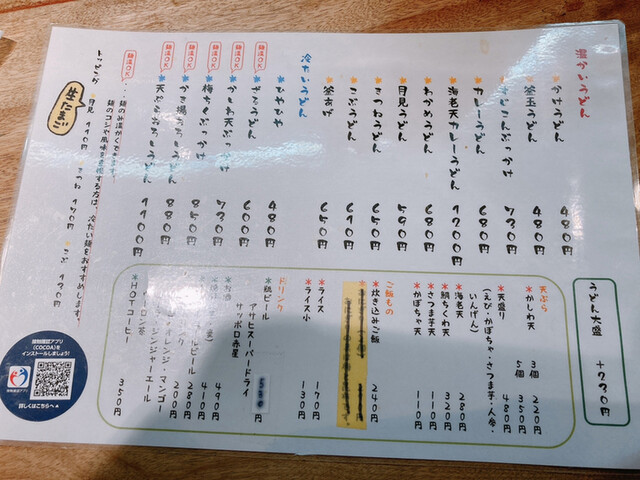 温かいうどん
*かけうどん 480円
*釜玉うどん 480円
ぶっかけ 730円
*カレーうどん 680円
*海老天カレーうどん 1200円
*わかめうどん 680円
*月見うどん 590円
*きつねうどん 650円
*こぶうどん 610円
*釜あげ 650円
冷たいうどん
*ひやひや 480円
麺温OK *ざるうどん 600円
麺温OK *かしわ天ぶっかけ 730円
麺温OK *梅ちくぶっかけ 850円
麺温OK *かき揚うどん 880円
麺温OK *天ぷら うどん 1100円
麺温OK …麺のみ温かくできます。
麺のコシや風味を重視する方は、冷たい麺をおすすめします。
トッピング *月見 110円 *きつね 170円 *こぶ 130円
生たまご
うどん大盛 +230円
天ぷら
*かしわ天 3個 220円
5個 350円
*天盛り 480円
(えび・かぼちゃ・さつま芋・人参・
いんげん)
*海老天 280円
*鯛ちくわ天 320円
*さつま芋天 110円
*かぼちゃ天 110円
ご飯もの
*炊き込みご飯 240円
*ライス 170円
*ライス小 130円
ドリンク
*瓶ビール
アサヒスーパードライ
サッポロ赤星 円
*お酒 490円
410円
ルビール 280円
オレンジ・マンゴー 200円
ウーロン茶 ジンジャーエール
*HOTコーヒー 350円
接触確認アプリ
(COCOA)を
インストールしましょう!
接触確認アプリ
詳しくはこちらへ